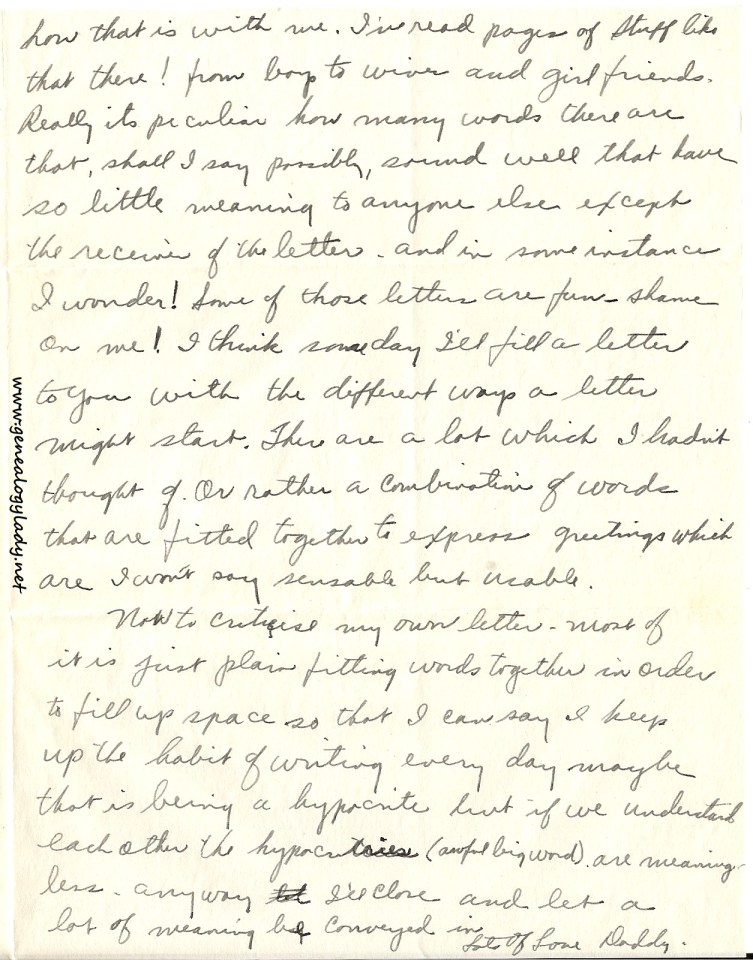 how that is with me. I've read pages of stuff like
that there! from boys to wives and girl friends.
Really its peculiar how many words there are
that, shall I say possibly, sound well that have
so little meaning to anyone else except
the receiver of the letter - and in some instance
I wonder! Some of those letters are fun - shame
on me! I think someday I'll fill a letter
to you with the different ways a letter
might start. There are a lot which I hadn't
thought of. Or rather a combination of words
that are fitted together to express greetings which
are I won't say sensable but usable.
Now to criticise my own letter - most of
it is just plain fitting words together in order
to fill up space so that I can say I keep
up the habit of writing every day maybe
that is being a hypocrite but if we understand
each other the (awful big word) are meaning-
less. anyway I'll close and let a
lot of meaning be conveyed in
Lots Of Love Daddy.
www.genealogylady.net